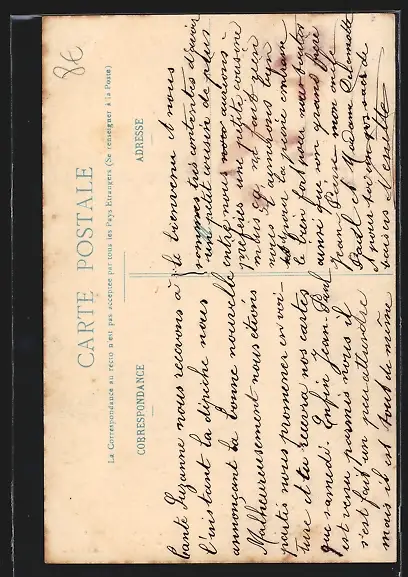 8€
CARTE POSTALE
La Correspondance au recto n'est pas acceptée par tous les Pays Étrangers (Se renseigner à la Poste)
CORRESPONDANCE
ADRESSE
Tante Suzanne nous recevons à
l'instant la dépêche nous
annonçant la bonne nouvelle
Malheureusement nous étions
partis nous promener en voi-
ture et tu recevra nos cartes
que samedi. Enfin Jean Paul
est venu parmis nous il
s'est fait un peu attendre
mais il est tout de même
le bienvenu et nous
sommes très contentes d'avoir
un petit cousin de plus
entre nous nous autions
préféré une petite cousine
mais
nous l'aimerons bien
le bien fort pour nous toutes
aussi que son grand frère
Jean Pierre mon oncle
Paul et Madame
pour toi
baisers